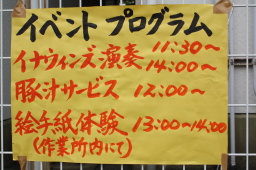 イベントプログラム
イナウィンズ演奏 11:30〜
14:00〜
豚汁サービス 12:00〜
絵手紙体験 13:00〜14:00
(作業所内にて)